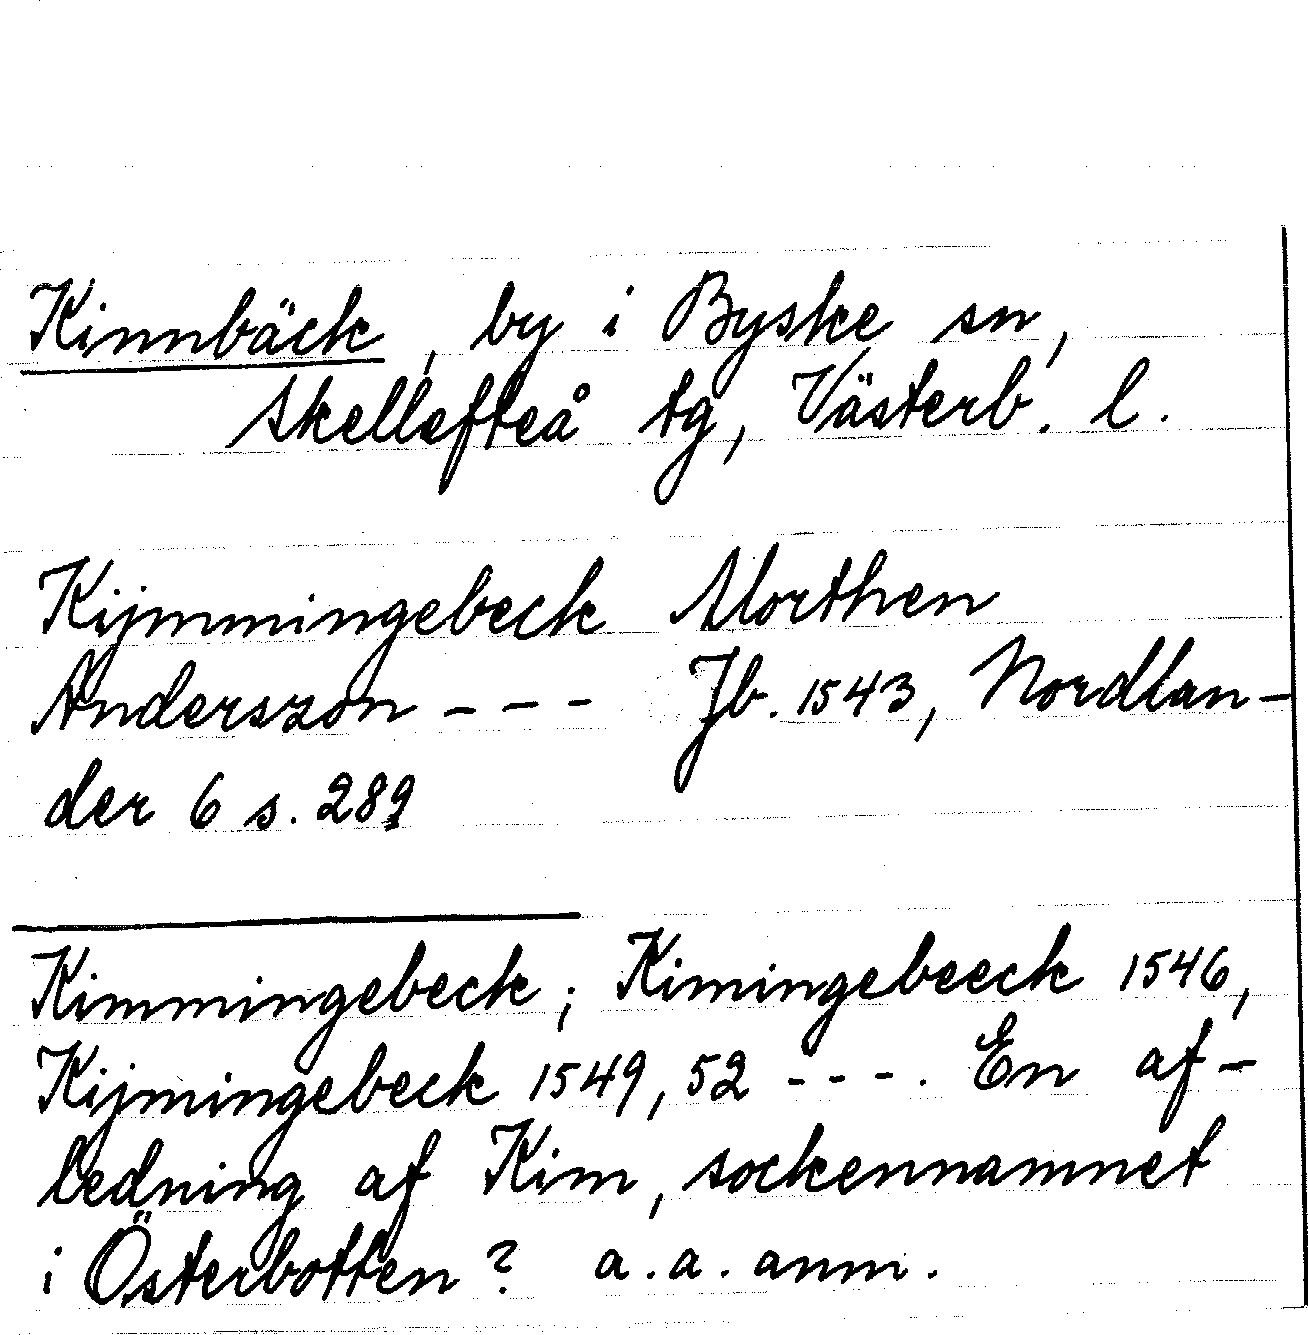 Kinnbäck, by i Byske sn,
Skellefteå tg, Västerb. l.
Kijmmingebeck Morthen
Anderszon - - - Jb. 1543, Nordlan-
der 6 s. 289
Kimmingebeck; Kimingebeeck 1546,
Kijmingebeck 1549, 52 - - -. En af-
ledning af Kim, sockennamnet
i Österbotten? a. a. anm.